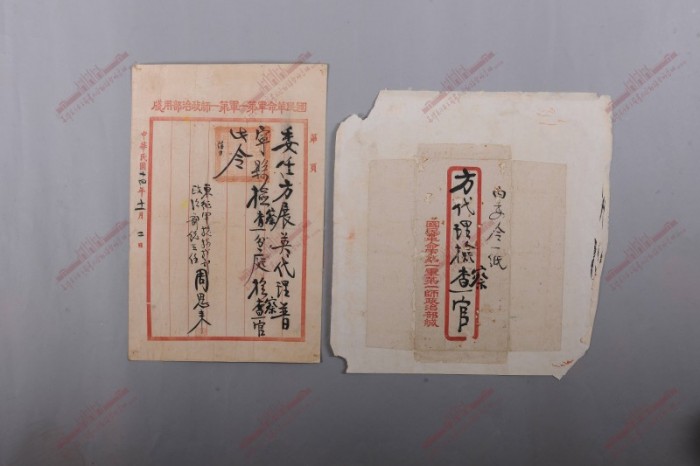 國民革命軍第一軍第一師政治部用牋
第 頁
委任方展英代理普
寧縣檢察分庭檢察官
此令
東征軍總指揮部
政治部總主任 周恩来
中華民國十四年十一月二日
內委令一紙
方代理檢察官
國民革命軍第一軍第一師政治部緘